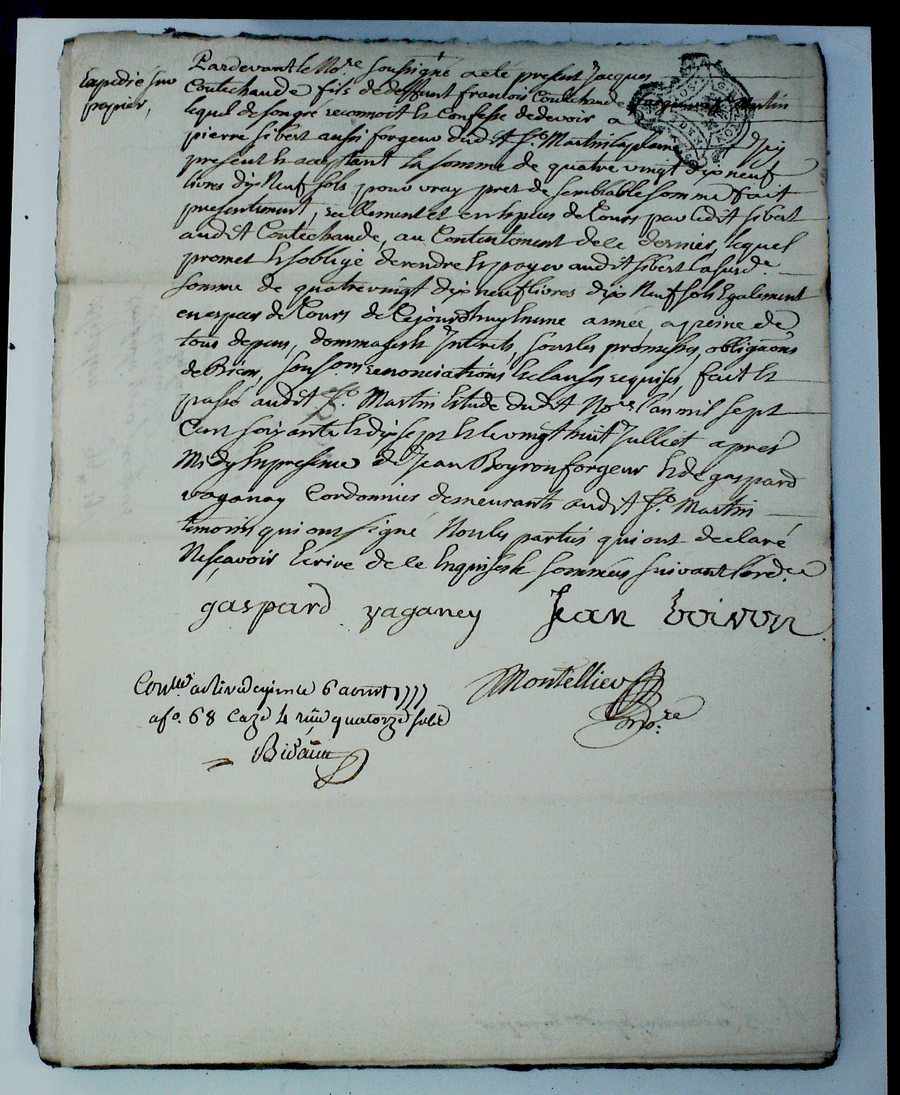 Expedié sur
papier,
Pardevant le No.re soussigné a eté present Jacques
Coutechaude fils de deffunt francois Coutechaude forgeur a St Martin
lequel de son gré reconnoit et Confesse de devoir a
pierre sibert aussi forgeur dudit St. Martin laplaine icy
present et acceptant la somme de quatre vingt dix neuf
livres dix Neuf sols pour vray prest de semblable somme fait
presentement, reellement et en especes de Cours par ledit sibert
audit Coutechaude, au Contentement de ce dernier, lequel
promet et s'oblige de rendre et payer audit sibert la susd.e
somme de quatre vingt dix neuf livres dix Neuf sols Egalement
en especes de Cours de Cejourdhuy en une année, a peine de
tous depens, dommages et Interets, sous les promesses, obligaons
de Biens, soumons renonciations et clauses requises, fait et
passé audit St. Martin Etude dudit No.re l'an mil sept
Cent soixante et dix sept et le vingt huit Juillet après
Midy En presence de Jean Boyron forgeur et de gaspard
vaganay Cordonnier demeurants audit St. Martin
temoins qui ont signé Non les parties qui ont declaré
Ne sçavoir Ecrire de ce Enquises et sommées suivant l'ord.ce
gaspard vaganey Jean boiron
Montellier
No.re
Con.lle a Rivedegier le 6 aout 1777
a fo. 68 Caze 4 reçu quatorze sols